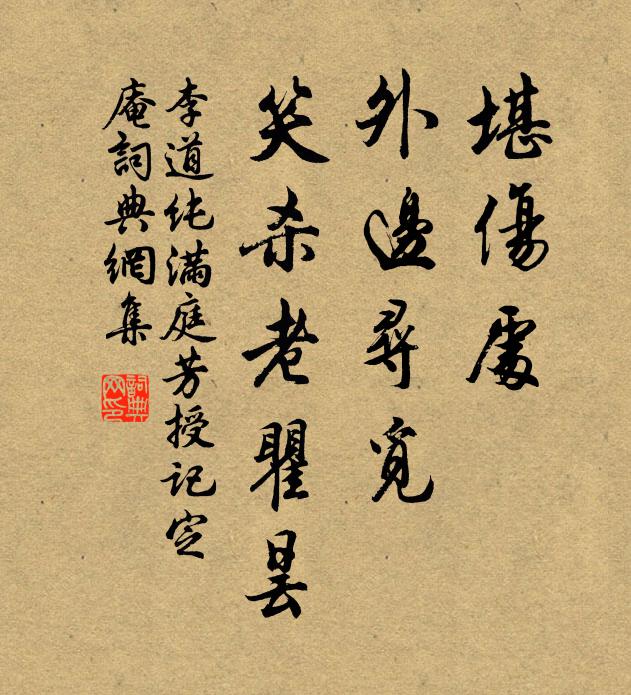 堪傷處
外邊尋覓
笑杀老瞿曇
李道纯满庭芳授记定
庵詞典網集
詞典網印